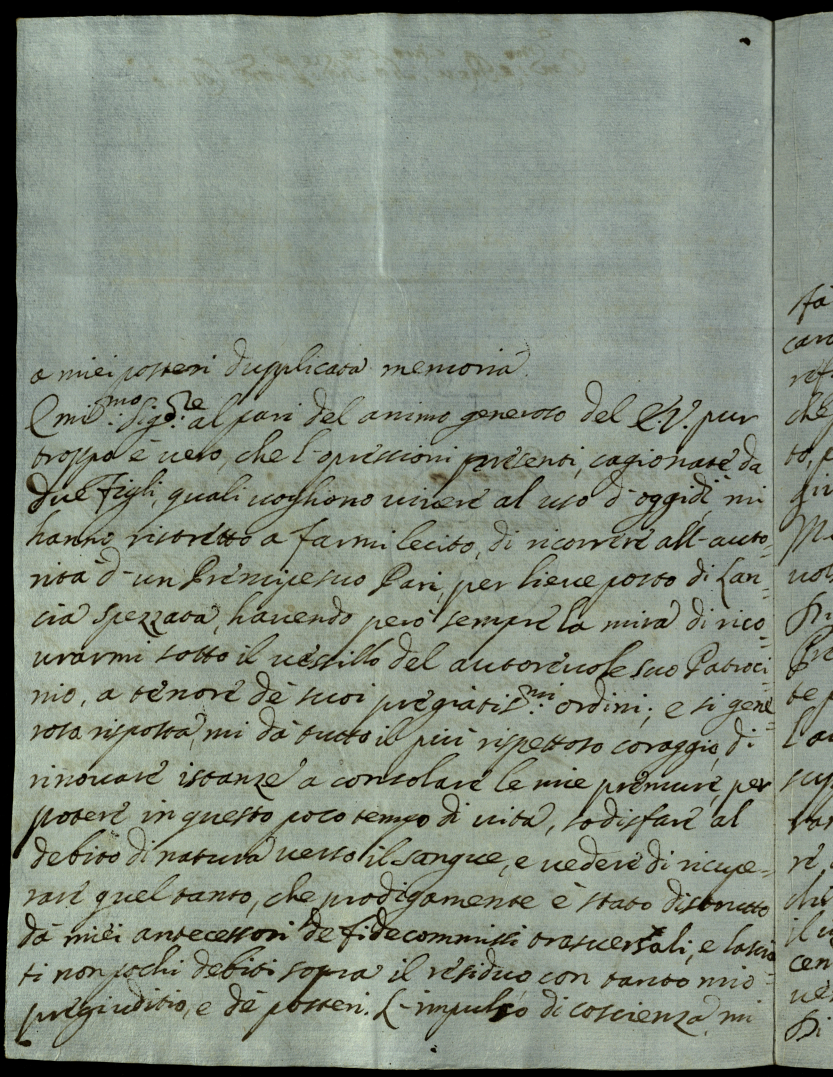 a miei posteri dupplicata memoria.
Emi.mo Sig.re al pari del animo generoso del E.V. pur
troppo è vero, che l'opressioni presenti, cagionate da
due Figli, quali vogliono vivere al uso d'oggidì mi
hanno ristretto a farmi lecito, di ricorrere all'auto=
rità d'un Prencipe suo Pari, per lieve posto di Lan=
cia spezzata, havendo però sempre la mira di rico=
vrarmi sotto il vessillo del autorevole suo Patroci=
nio, a tenore de suoi pregiatis.mi ordini; e si gene=
rosa risposta, mi dà tutto il più rispettoso coraggio, di
rinovare istanze a consolare le mie premure, per
potere in questo poco tempo di vita, sodisfare al
debito di natura verso il sangue, e vedere di ricupe=
rare quel tanto, che prodigamente è stato distrutto
da miei antecessori de fidecommissi trasversali, e lascia
ti non pochi debiti sopra il residuo con tanto mio
pregiuditio, e de posteri. L'impulso di coscienza mi